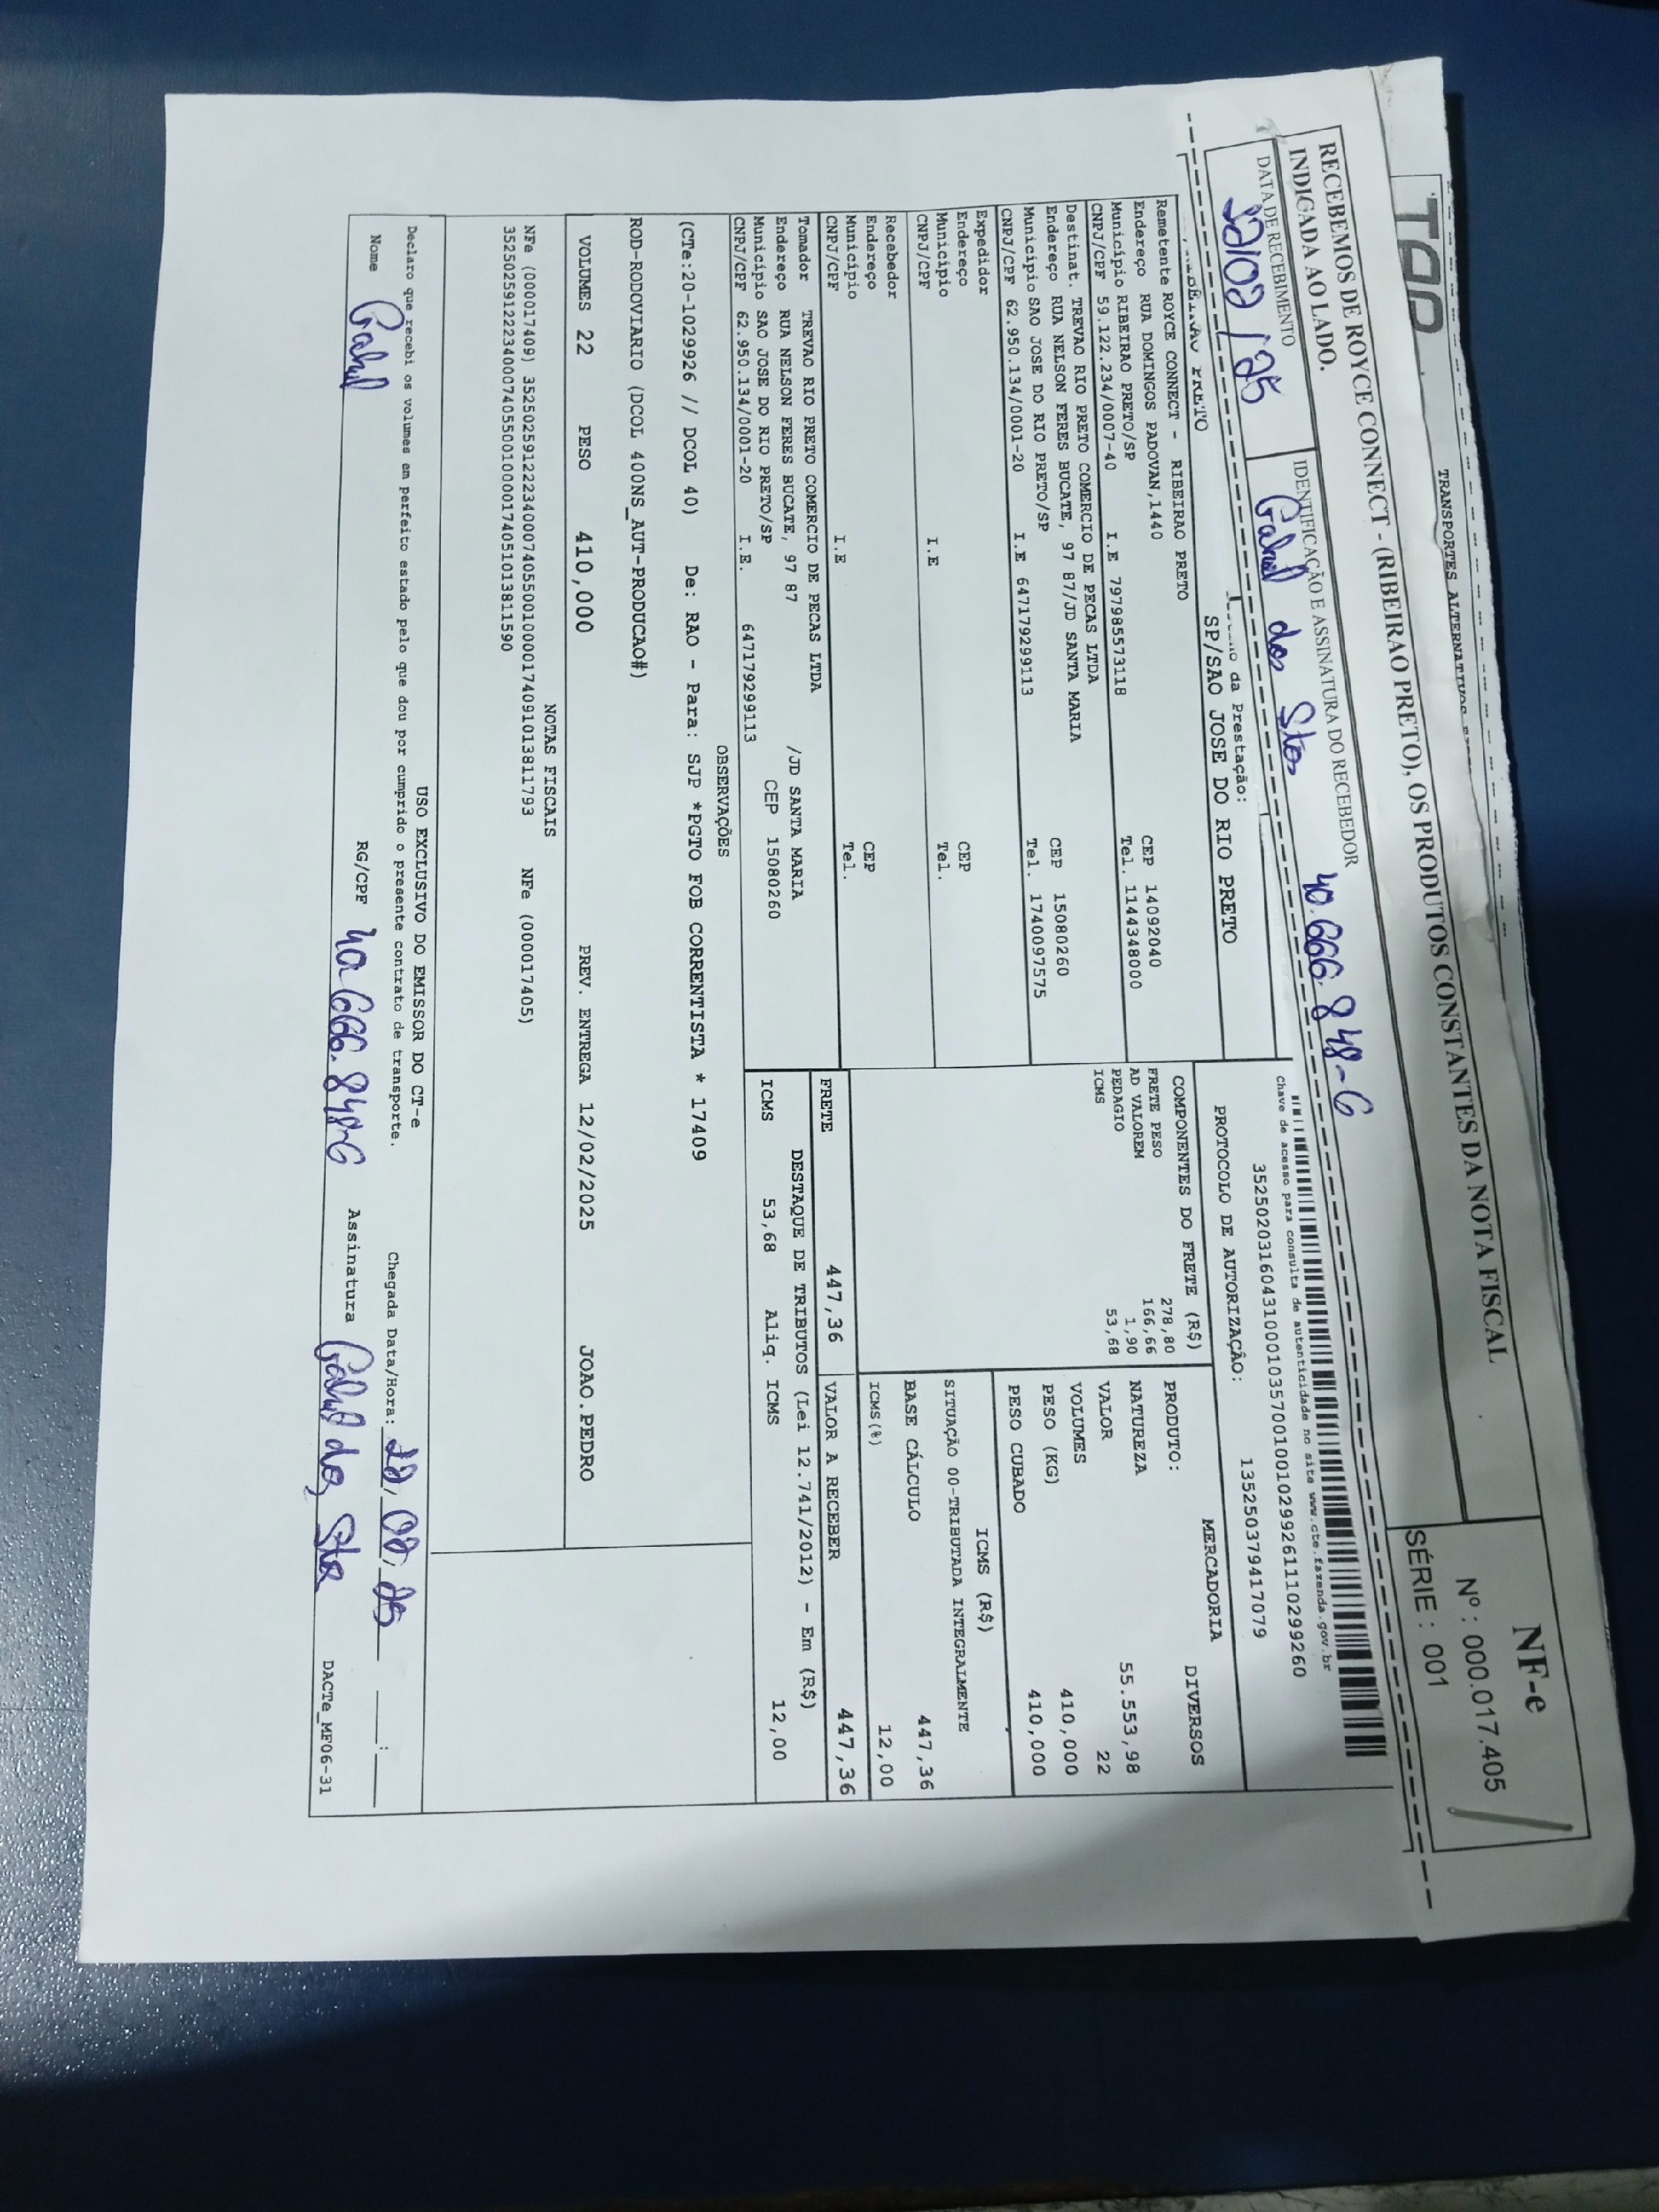 TRANSPORTES ALTERNATIVOS
RECEBEMOS DE ROYCE CONNECT - (RIBEIRAO PRETO), OS PRODUTOS CONSTANTES DA NOTA FISCAL
INDICADA AO LADO.
NF-e
Nº : 000.017.405
SÉRIE : 001
DATA DE RECEBIMENTO
IDENTIFICAÇÃO E ASSINATURA DO RECEBEDOR
40.666.848-6
da Prestação:
SP/SAO JOSE DO RIO PRETO
PRETO
Chave de acesso para consulta de autenticidade no site www.cte.fazenda.gov.br
PROTOCOLO DE AUTORIZAÇÃO: 135250379417079
Remetente ROYCE CONNECT - RIBEIRAO PRETO
Endereço RUA DOMINGOS PADOVAN,1440 CEP 14092040
Município RIBEIRAO PRETO/SP Tel. 1144348000
CNPJ/CPF 59.122.234/0007-40 I.E 797985573118
Destinat. TREVAO RIO PRETO COMERCIO DE PECAS LTDA
Endereço RUA NELSON FERES BUCATE, 97 87/JD SANTA MARIA CEP 15080260
Município SAO JOSE DO RIO PRETO/SP Tel. 1740097575
CNPJ/CPF 62.950.134/0001-20 I.E 647179299113
Expedidor
Endereço CEP
Município Tel.
CNPJ/CPF I.E
Recebedor
Endereço CEP
Município Tel.
CNPJ/CPF I.E
Tomador TREVAO RIO PRETO COMERCIO DE PECAS LTDA
Endereço RUA NELSON FERES BUCATE, 97 87 /JD SANTA MARIA
Município SAO JOSE DO RIO PRETO/SP CEP 15080260
CNPJ/CPF 62.950.134/0001-20 I.E. 647179299113
COMPONENTES DO FRETE (R$)
FRETE PESO 278,80
AD VALOREM 166,66
PEDAGIO 1,90
ICMS 53,68
MERCADORIA
PRODUTO: DIVERSOS
NATUREZA
VALOR 55.553,98
VOLUMES 22
PESO (KG) 410,000
PESO CUBADO 410,000
ICMS (R$)
SITUAÇÃO 00-TRIBUTADA INTEGRALMENTE
BASE CÁLCULO 447,36
ICMS(%) 12,00
FRETE 447,36 VALOR A RECEBER 447,36
DESTAQUE DE TRIBUTOS (Lei 12.741/2012) - Em (R$)
ICMS 53,68 Aliq. ICMS 12,00
OBSERVAÇÕES
(CTe:20-1029926 // DCOL 40) De: RAO - Para: SJP *PGTO FOB CORRENTISTA * 17409
ROD-RODOVIARIO (DCOL 400NS_AUT-PRODUCAO#)
VOLUMES 22 PESO 410,000 PREV. ENTREGA 12/02/2025 JOAO.PEDRO
NOTAS FISCAIS
NFe (000017409) 35250259122234000740550010000174091013811793 NFe (000017405)
35250259122234000740550010000174051013811590
USO EXCLUSIVO DO EMISSOR DO CT-e
Declaro que recebi os volumes em perfeito estado pelo que dou por cumprido o presente contrato de transporte. Chegada Data/Hora:
Nome RG/CPF 40.666.848-6 Assinatura
DACTe_MF06-31